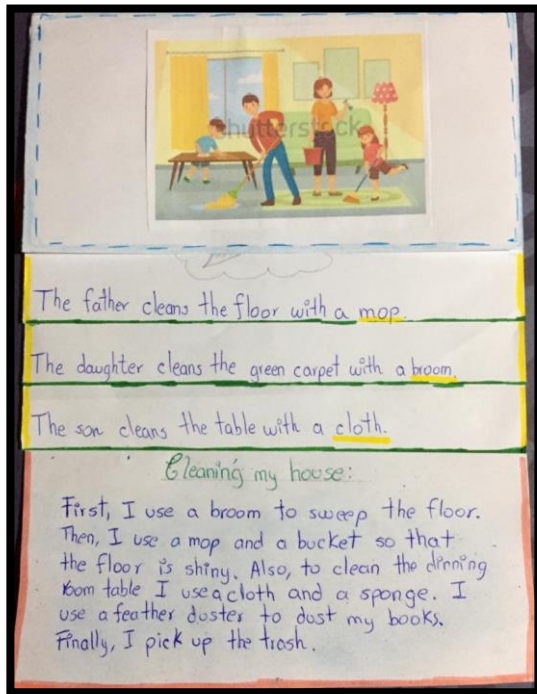 shutterstock
The father cleans the floor with a mop.
The daughter cleans the green carpet with a broom.
The son cleans the table with a cloth.
Cleaning my house:
First, I use a broom to sweep the floor.
Then, I use a mop and a bucket so that
the floor is shiny. Also, to clean the dinning
room table I use a cloth and a sponge. I
use a feather duster to dust my books.
Finally, I pick up the trash.